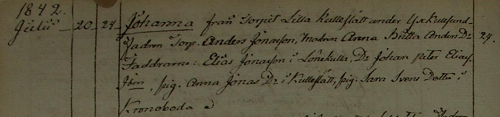 1842.
Julii 20 24 Johanna från Torpet Lilla Kulleflatt under
Fadren Torp. Anders Jönasson, Modren Anna Britta Anders Dr 27.
Faddrarna: Elias Jonasson i Lönekulle, Dr. Johan Peter Elias
pig. Anna Jonas Dr i Kulleflatt, pig. Sara Svens Dotter i
Kronoboda